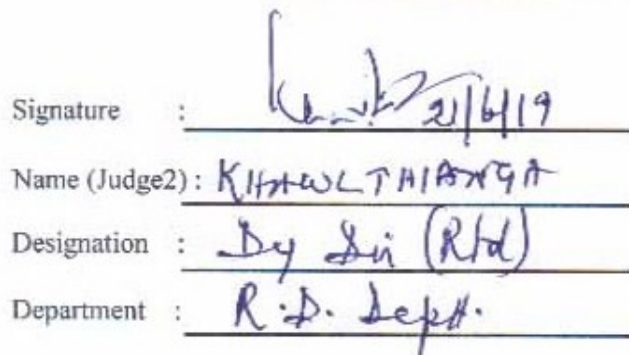 Signature : 21/6/19
Name (Judge2) : KHAWLTHIANGA
Designation : Dy Dir (Rtd)
Department : R.D. Deptt.